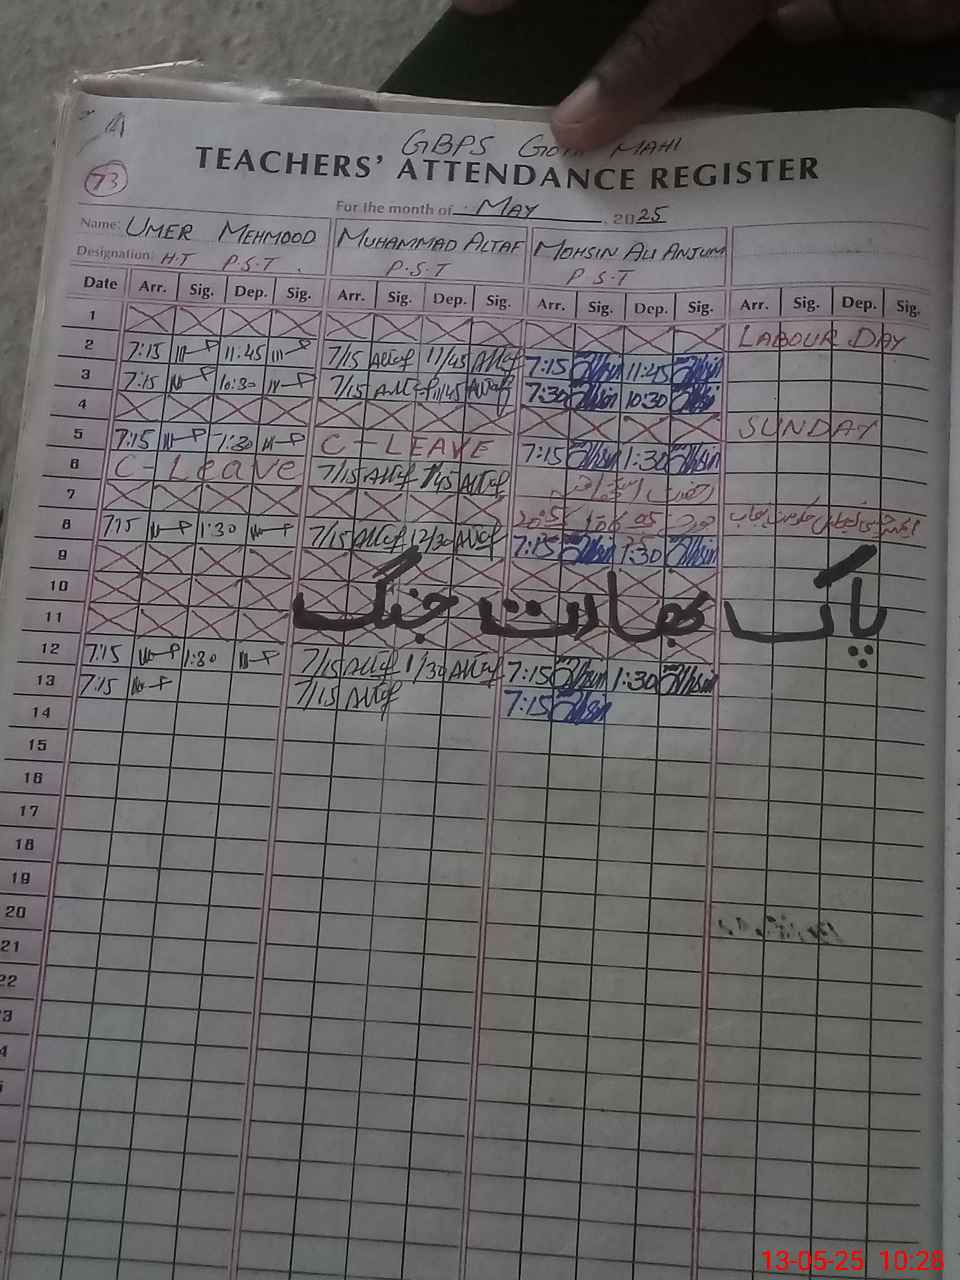 73
GBPS Goth MAHI
TEACHERS' ATTENDANCE REGISTER
For the month of MAY, 2025
Name: UMER MEHMOOD MUHAMMAD ALTAF MOHSIN ALI ANJUM
Designation: H.T P.S.T. P.S.T P.S.T
Date Arr. Sig. Dep. Sig. Arr. Sig. Dep. Sig. Arr. Sig. Dep. Sig. Arr. Sig. Dep. Sig.
1 LABOUR DAY
2 7:15 11:45 7/15 Altaf 11/45 Altaf 7:15 11:45
3 7:15 10:30 7/15 Altaf 11/45 Altaf 7:30 10:30
4 SUNDAY
5 7:15 1:30 C-LEAVE 7:15 1:30
6 C-Leave 7/15 Altaf 1/45 Altaf
7
8 7:15 1:30 7/15 Altaf 12/30 Altaf 7:15 1:30
9
10 پاک بھارت جنگ
11
12 7:15 1:30 7/15 Altaf 1/30 Altaf 7:15 1:30
13 7:15 7/15 Altaf 7:15
14
15
16
17
18
19
20
21
22
3
4
13-05-25 10:28